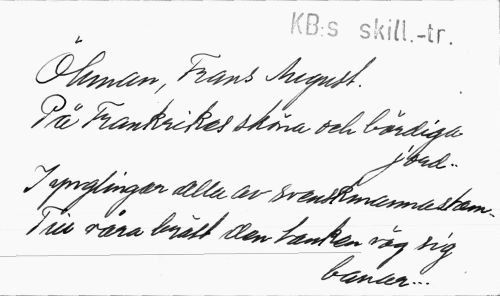 KB:s skill.-tr.
Öhman, Frans August.
På Frankrikes sköna och bördiga
jord..
I ynglingar alla av svenskmannastam.
Till våra bröst den tanken väg sig
banar...